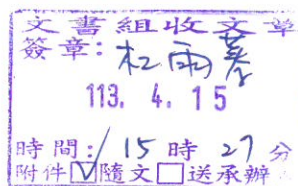 文書組收文章
簽章:杜雨蓁
113. 4. 15
時間:/15時27分
附件☑隨文☐送承辦